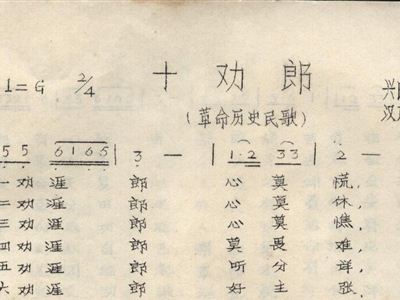 十劝郎
1=G 2/4 兴
(革命历史民歌) 汉
5 5 6165 | 3 — | 1·2 33 | 2 —
一劝涯 郎 心莫慌,
二劝涯 郎 心莫休,
三劝涯 郎 心莫憔,
四劝涯 郎 莫畏难,
五劝涯 郎 听分详,
六劝涯 郎 好主张,